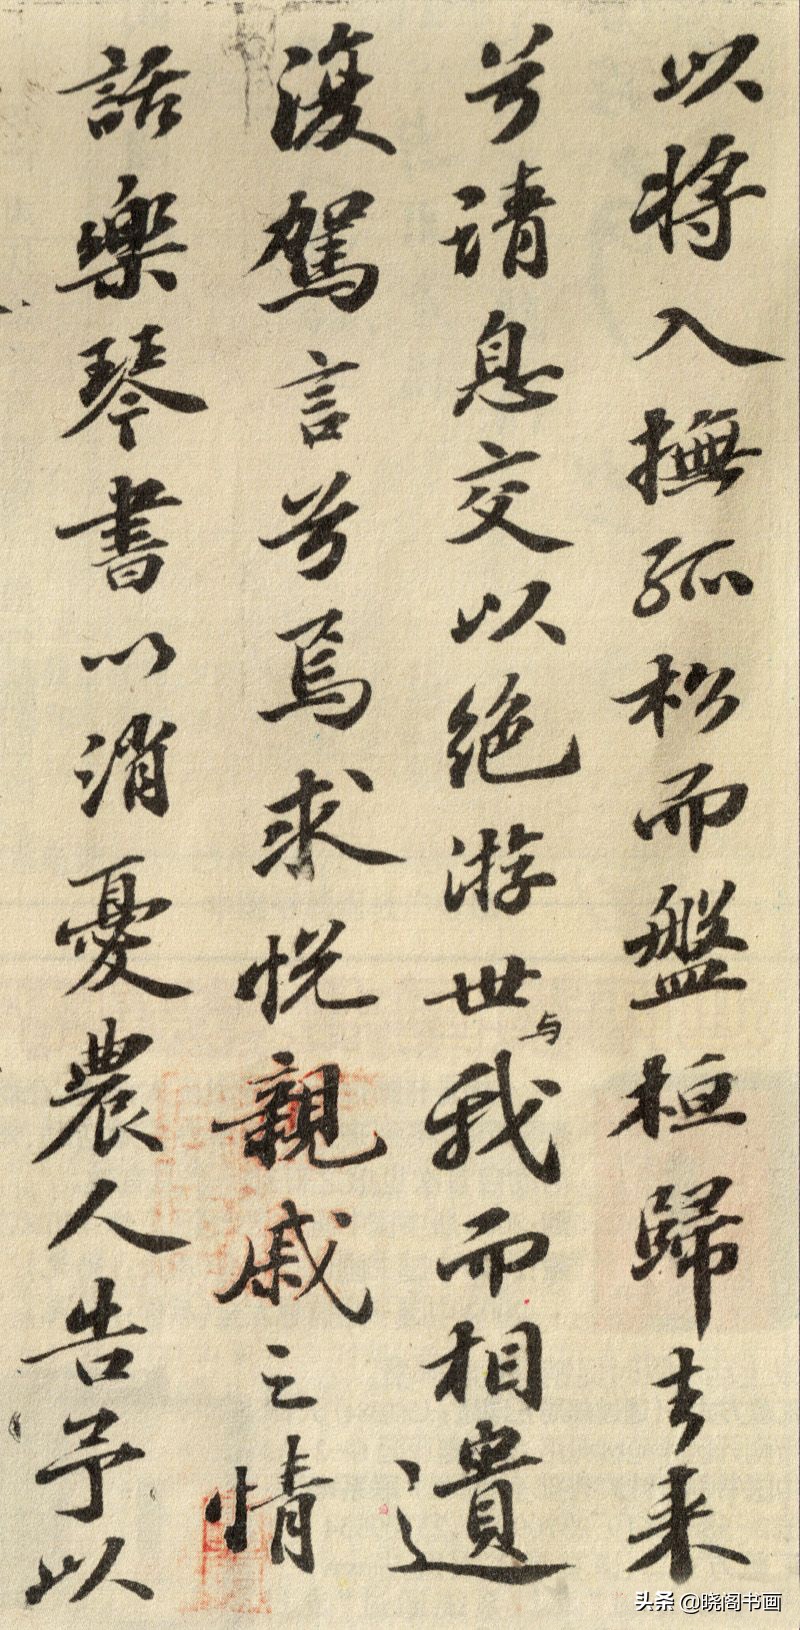 以将入撫孤松而盤桓歸去来
兮請息交以絶游世与我而相遺
復駕言兮焉求悦親戚之情
話樂琴書以消憂農人告予以
头条 @晓阁书画